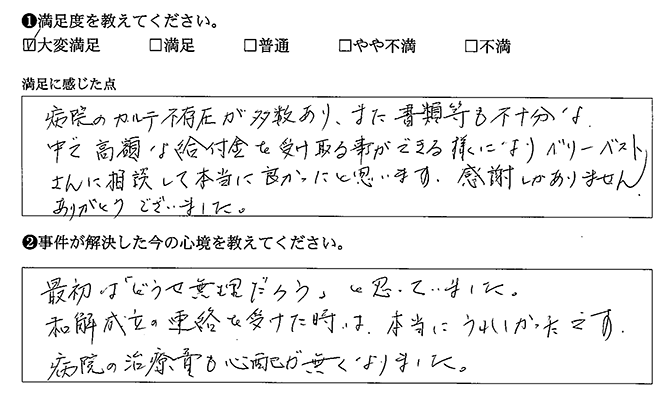 ❶満足度を教えてください。
☑大変満足 □満足 □普通 □やや不満 □不満
満足に感じた点
病院のカルテ不存在が多数あり、また書類等も不十分な
中で高額な給付金を受け取る事ができる様になりベリーベスト
さんに相談して本当に良かったと思います。感謝しかありません
ありがとうございました。
❷事件が解決した今の心境を教えてください。
最初は「どうせ無理だろう」と思っていました。
和解成立の連絡を受けた時は、本当にうれしかったです。
病院の治療費も心配が無くなりました。